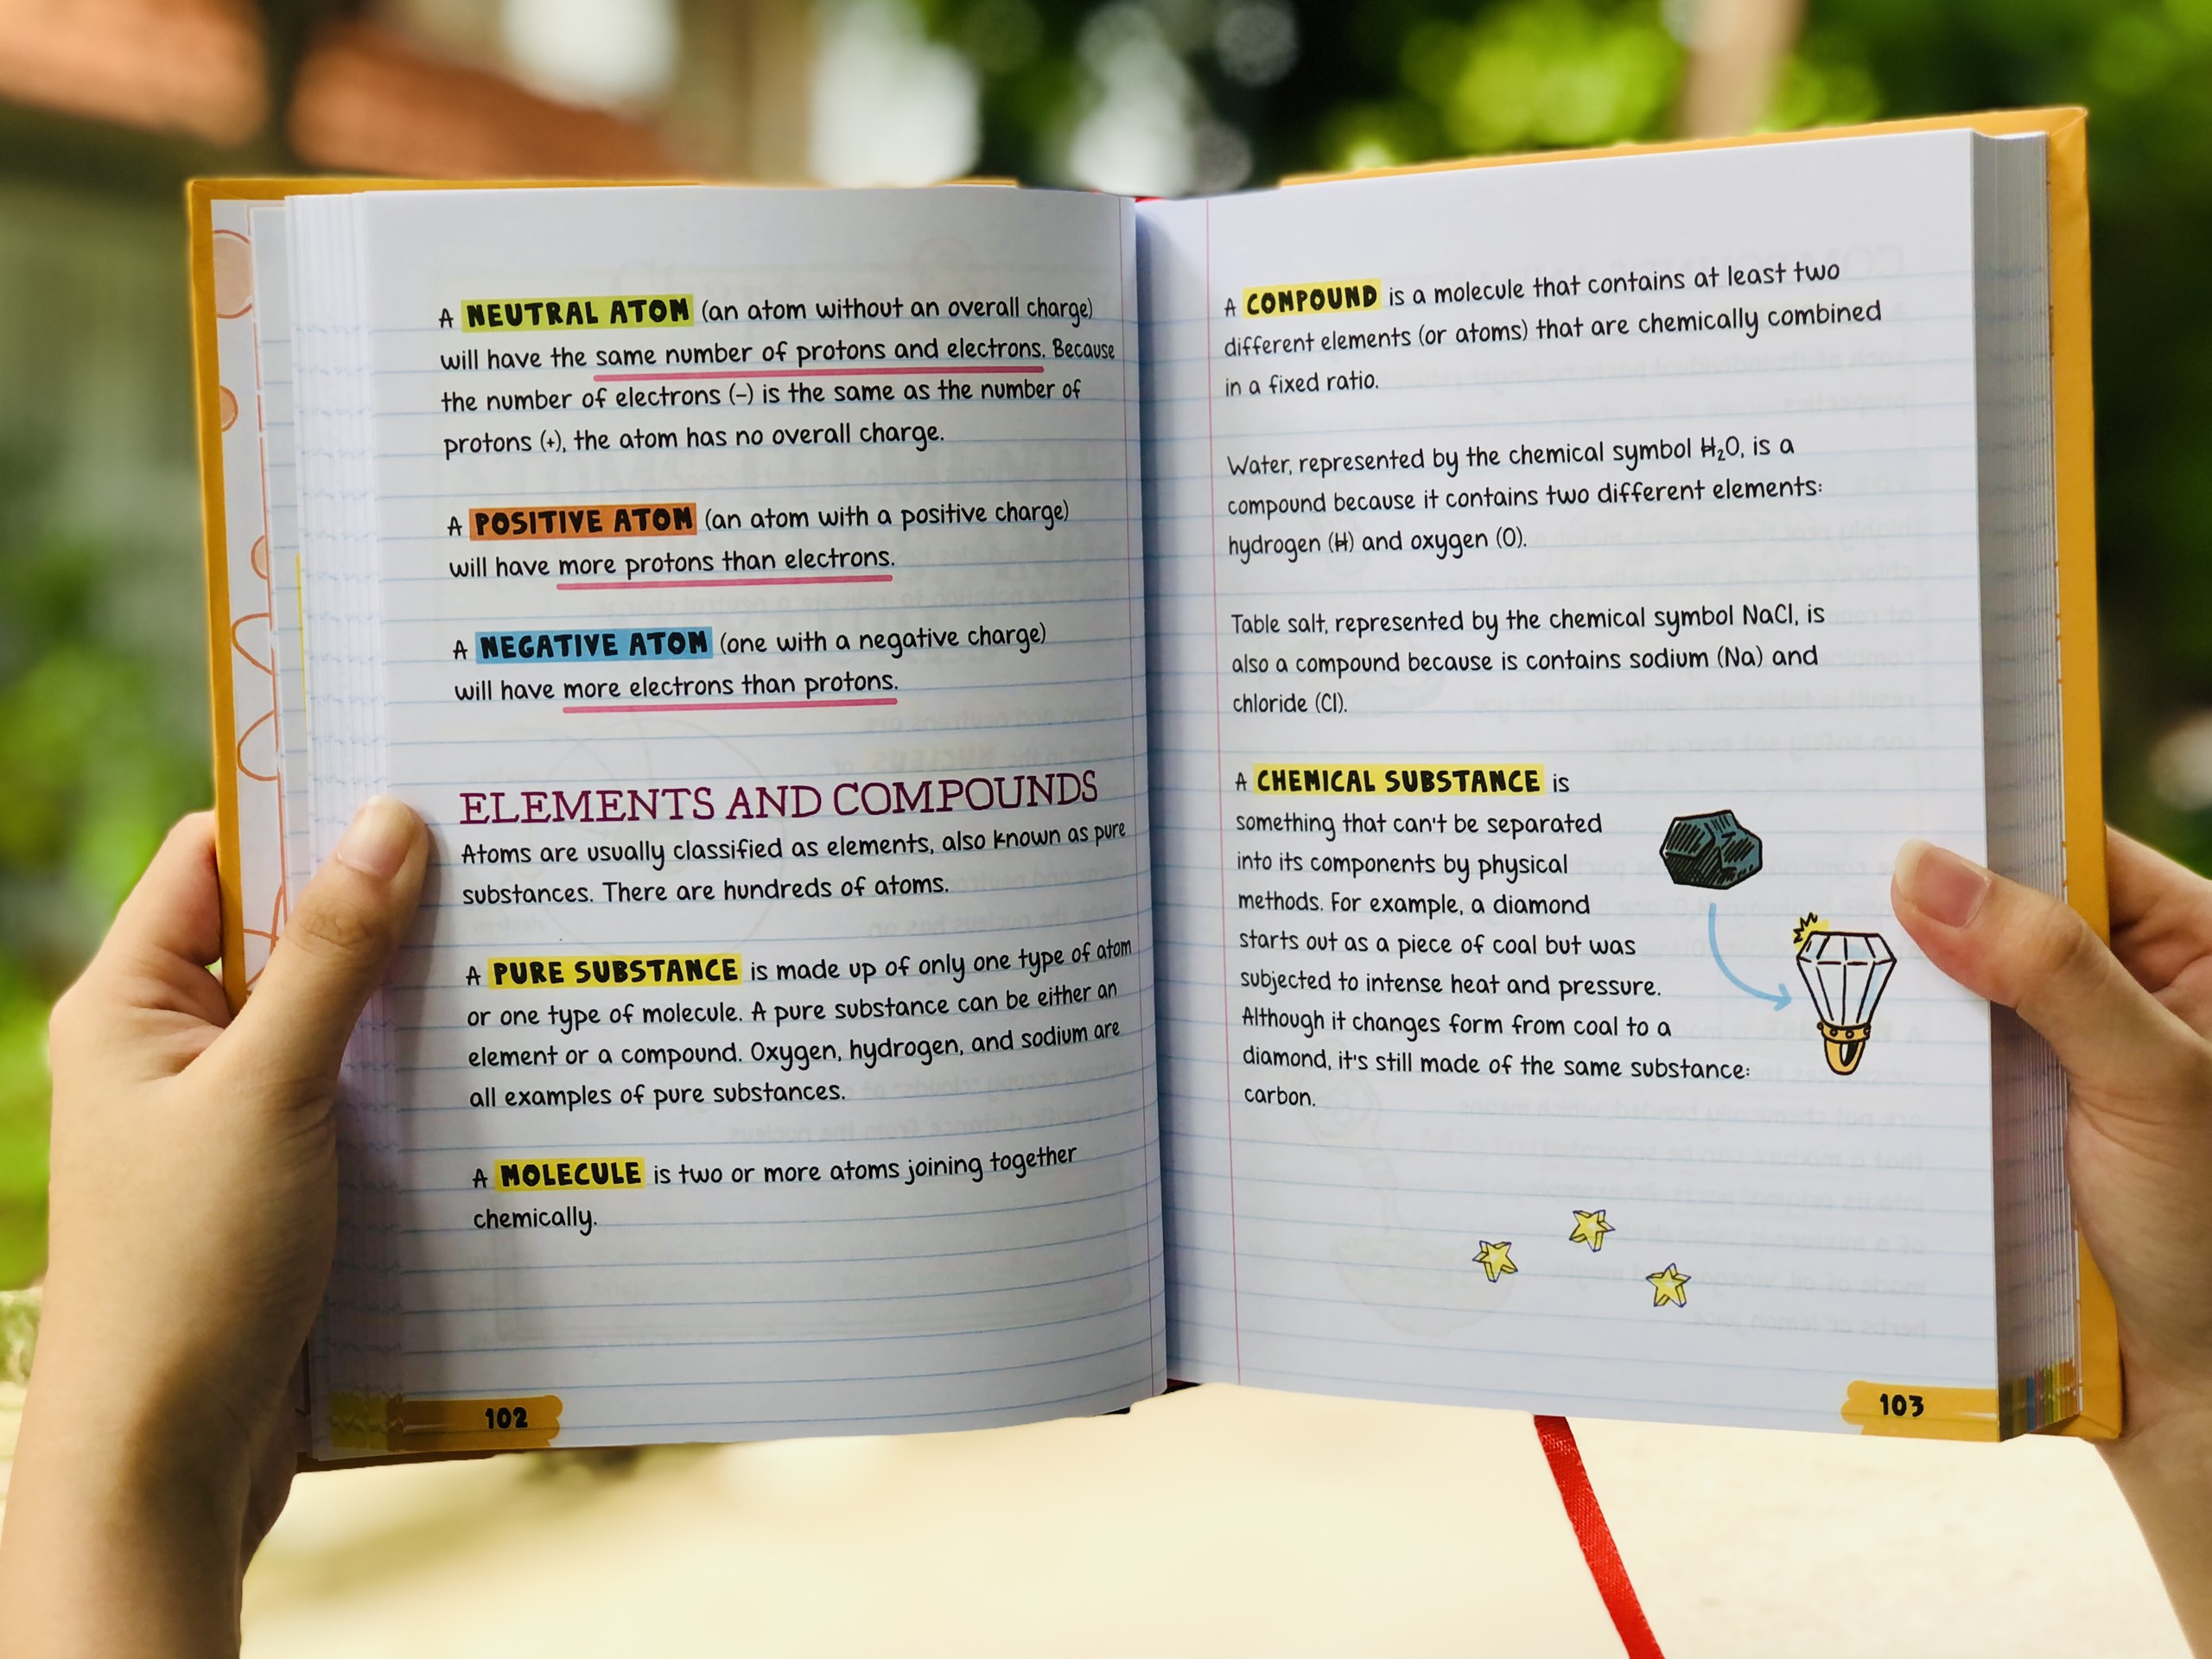 A NEUTRAL ATOM (an atom without an overall charge)
will have the same number of protons and electrons. Because
the number of electrons (–) is the same as the number of
protons (+), the atom has no overall charge.
A POSITIVE ATOM (an atom with a positive charge)
will have more protons than electrons.
A NEGATIVE ATOM (one with a negative charge)
will have more electrons than protons.
ELEMENTS AND COMPOUNDS
Atoms are usually classified as elements, also known as pure
substances. There are hundreds of atoms.
A PURE SUBSTANCE is made up of only one type of atom
or one type of molecule. A pure substance can be either an
element or a compound. Oxygen, hydrogen, and sodium are
all examples of pure substances.
A MOLECULE is two or more atoms joining together
chemically.
102
A COMPOUND is a molecule that contains at least two
different elements (or atoms) that are chemically combined
in a fixed ratio.
Water, represented by the chemical symbol H₂O, is a
compound because it contains two different elements:
hydrogen (H) and oxygen (O).
Table salt, represented by the chemical symbol NaCl, is
also a compound because is contains sodium (Na) and
chloride (Cl).
A CHEMICAL SUBSTANCE is
something that can't be separated
into its components by physical
methods. For example, a diamond
starts out as a piece of coal but was
subjected to intense heat and pressure.
Although it changes form from coal to a
diamond, it's still made of the same substance:
carbon.
103